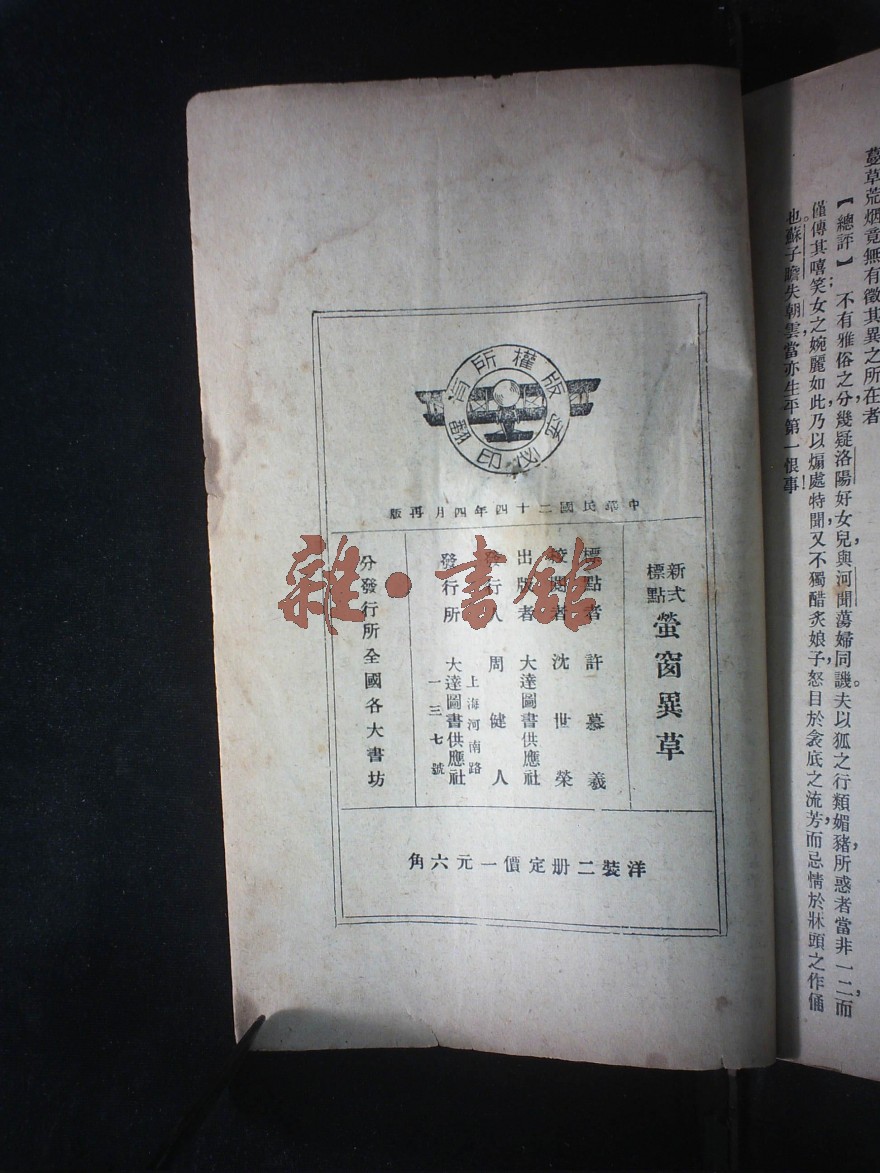 蔓草荒烟竟無有徵其異之所在者
【總評】不有雅俗之分幾疑洛陽好女兒與河間蕩婦同譏。夫以狐之行類媚豬所惑者當非一二，而
僅傳其嘻笑；女之婉麗如此，乃以煽處特聞，又不獨醋炙娘子，怒目於衾底之流芳，而忌情於牀頭之作俑
也。蘇子瞻失朝雲，當亦生平第一恨事！
版權所有
翻印必究
中華民國二十四年四月再版
新式標點 螢窗異草
標點者 許慕羲
校閱者 沈世榮
出版者 大達圖書供應社
發行人 周健人
發行所 上海河南路一三七號 大達圖書供應社
分發行所全國各大書坊
洋裝二册定價一元六角
雜·書館